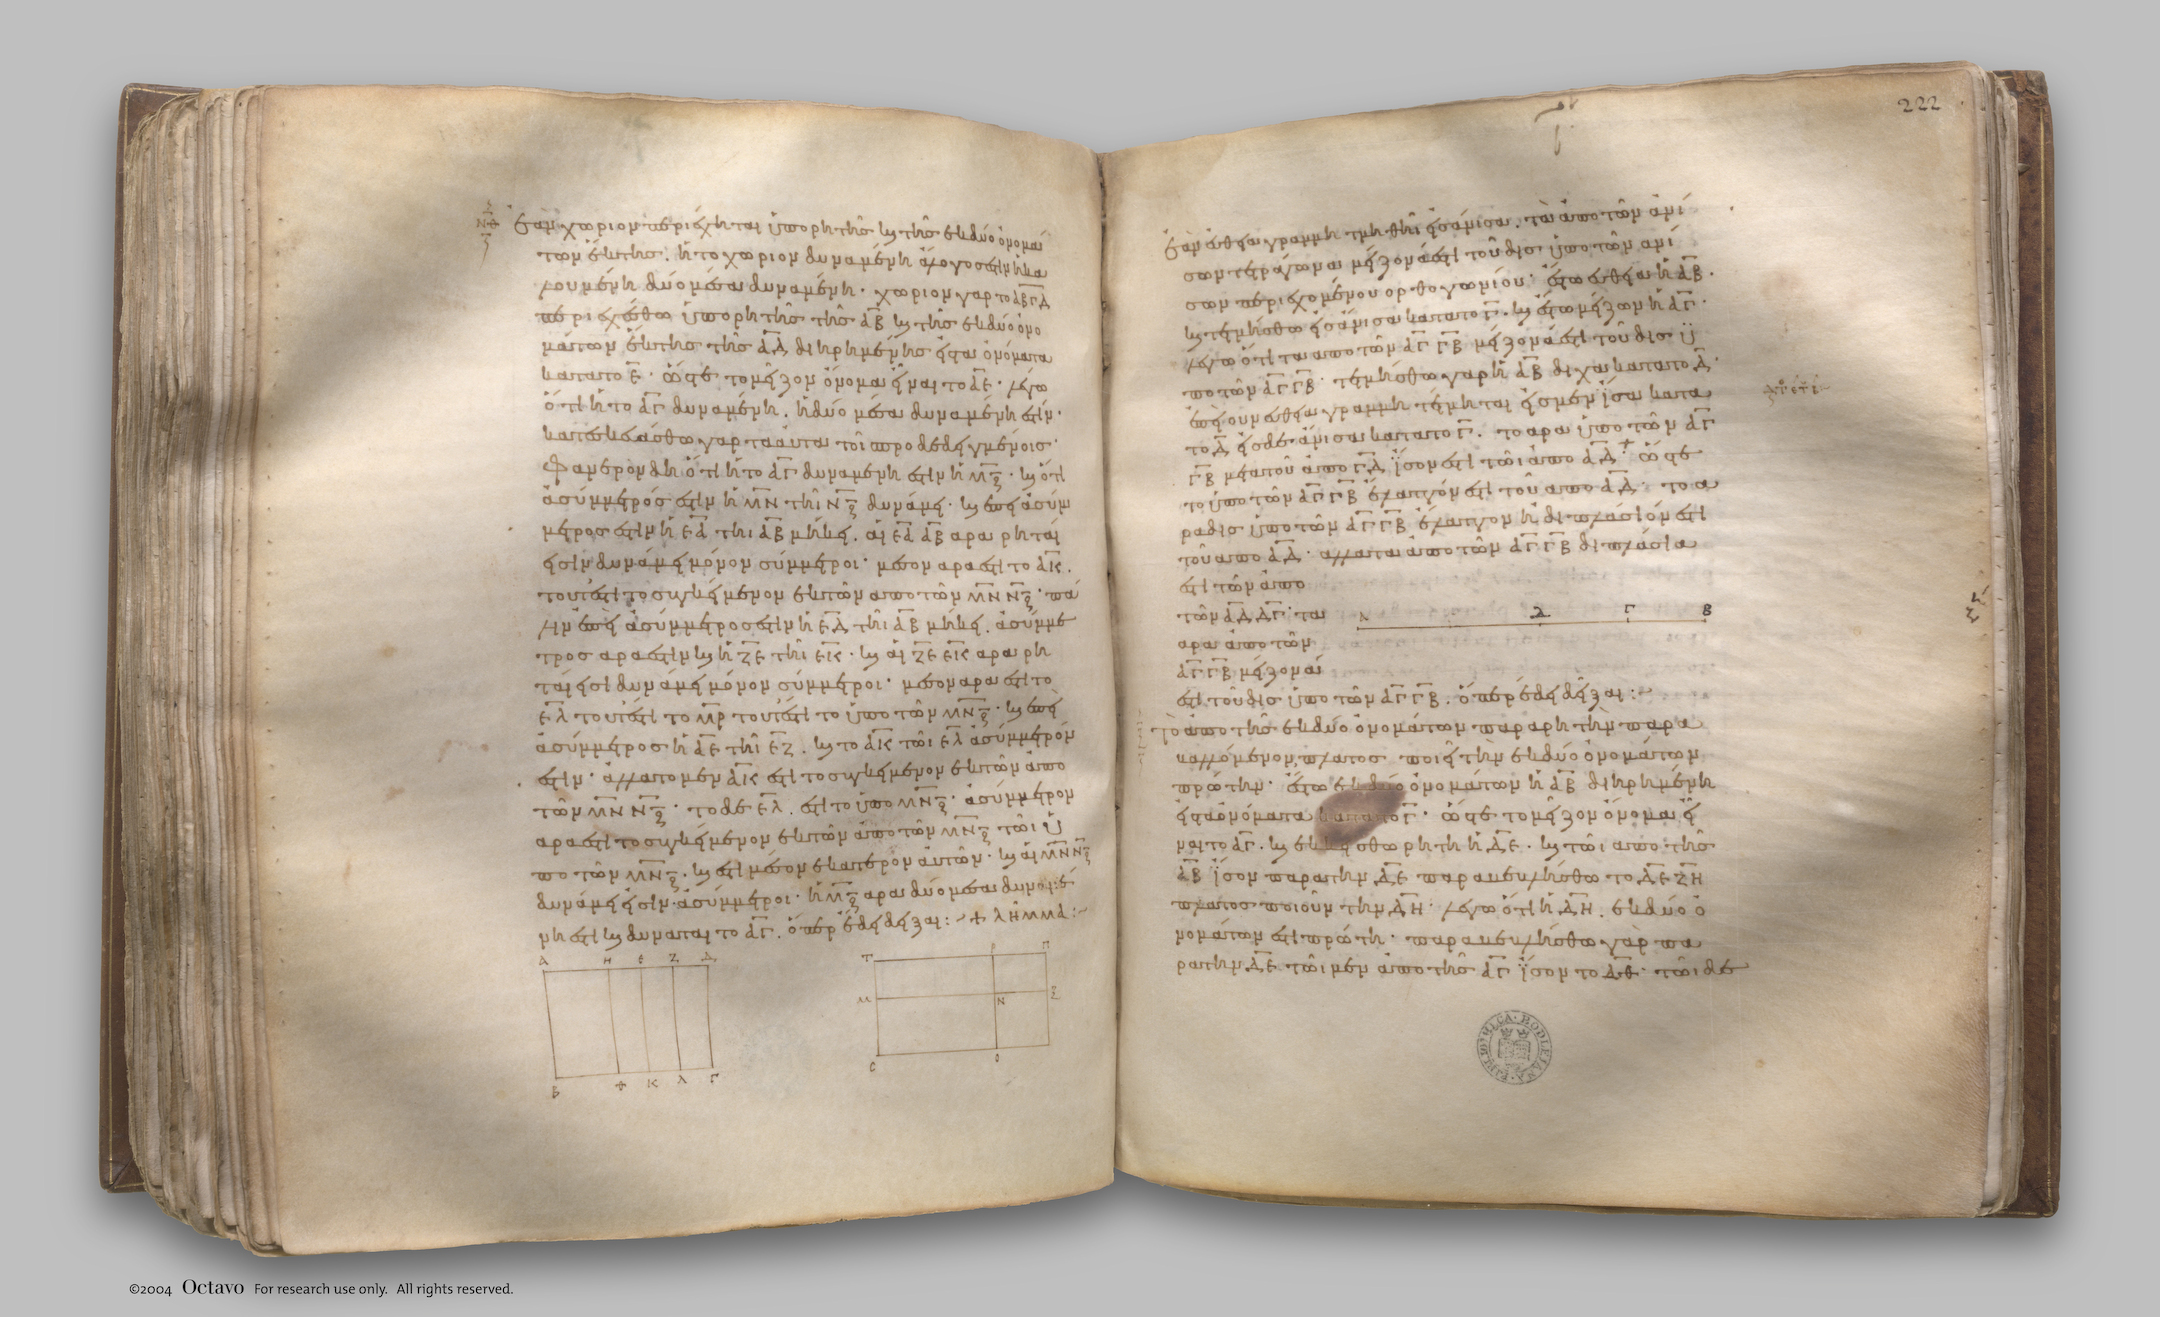 ἐὰν χωρίον περιέχηται ὑπὸ ῥητῆς καὶ τῆς ἐκ δύο ὀνομά
των ἕκτης. ἡ τὸ χωρίον δυναμένη ἄλογός ἐστιν ἡ κα
λουμένη δύο μέσα δυναμένη· χωρίον γὰρ τὸ ΑΒΓΔ
περιεχέσθω ὑπὸ ῥητῆς τῆς ΑΒ καὶ τῆς ἐκ δύο ὀνο
μάτων ἕκτης τῆς ΑΔ διῃρημένης εἰς τὰ ὀνόματα
κατὰ τὸ Ε· ὥστε τὸ μεῖζον ὄνομα εἶναι τὸ ΑΕ· λέγω
ὅτι ἡ τὸ ΑΓ δυναμένη. ἡ δύο μέσα δυναμένη ἐστίν·
κατεσκευάσθω γὰρ τὰ αὐτὰ τοῖς προδεδειγμένοις·
Φανερὸν δὴ ὅτι ἡ τὸ ΑΓ δυναμένη ἐστὶν ἡ ΜΞ· καὶ ὅτι
ἀσύμμετρός ἐστιν ἡ ΜΝ τῆι ΝΞ δυνάμει· καὶ ἐπεὶ ἀσύμ
μετρός ἐστιν ἡ ΕΑ τῆι ΑΒ μήκει. αἱ ΕΑ ΑΒ ἄρα ῥηταί
εἰσιν δυνάμει μόνον σύμμετροι· μέσον ἄρα ἐστὶ τὸ ΑΚ.
τουτέστι τὸ συγκείμενον ἐκ τῶν ἀπὸ τῶν ΜΝ ΝΞ· πά
λιν ἐπεὶ ἀσύμμετρός ἐστιν ἡ ΕΔ τῆι ΑΒ μήκει. ἀσύμμε
τρος ἄρα ἐστὶν καὶ ἡ ΖΕ τῆι ΕΚ· καὶ αἱ ΖΕ ΕΚ ἄρα ῥη
ταί εἰσι δυνάμει μόνον σύμμετροι· μέσον ἄρα ἐστὶ τὸ
ΕΛ τουτέστι τὸ ΜΡ τουτέστι τὸ ὑπὸ τῶν ΜΝΞ· καὶ ἐπεὶ
ἀσύμμετρος ἡ ΑΕ τῆι ΕΖ. καὶ τὸ ΑΚ τῶι ΕΛ ἀσύμμετρόν
ἐστιν· ἀλλὰ τὸ μὲν ΑΚ ἐστὶ τὸ συγκείμενον ἐκ τῶν ἀπὸ
τῶν ΜΝ ΝΞ· τὸ δὲ ΕΛ. ἐστὶ τὸ ὑπὸ ΜΝΞ· ἀσύμμετρον
ἄρα ἐστὶ τὸ συγκείμενον ἐκ τῶν ἀπὸ τῶν ΜΝΞ τῶι ὑ
πὸ τῶν ΜΝΞ· καὶ ἐστὶ μέσον ἑκάτερον αὐτῶν· καὶ αἱ ΜΝ ΝΞ
δυνάμει εἰσὶν ἀσύμμετροι· ἡ ΜΞ ἄρα δύο μέσα δυναμέ
νη ἐστὶ καὶ δύναται τὸ ΑΓ. ὅπερ ἔδει δεῖξαι :~ + ΛΗΜΜΑ :~
Α Η Ε Ζ Δ
Β Θ Κ Λ Γ
Τ Ρ Π
Μ Ν Ξ
Ϲ Ο
222
ἐὰν εὐθεῖα γραμμὴ τμηθῆι εἰς ἄνισα. τὰ ἀπὸ τῶν ἀνί
σων τετράγωνα μείζονά ἐστι τοῦ δὶς ὑπὸ τῶν ἀνί
σων περιεχομένου ὀρθογωνίου· ἔστω εὐθεῖα ἡ ΑΒ.
καὶ τετμήσθω εἰς ἄνισα κατὰ τὸ Γ. καὶ ἔστω μείζων ἡ ΑΓ·
λέγω ὅτι τὰ ἀπὸ τῶν ΑΓ ΓΒ μείζονά ἐστι τοῦ δὶς ὑ
πὸ τῶν ΑΓ ΓΒ· τετμήσθω γὰρ ἡ ΑΒ δίχα κατὰ τὸ Δ·
ἐπεὶ οὖν εὐθεῖα γραμμὴ τέτμηται εἰς μὲν ἴσα κατὰ
τὸ Δ εἰς δὲ ἄνισα κατὰ τὸ Γ. τὸ ἄρα ὑπὸ τῶν ΑΓ
ΓΒ μετὰ τοῦ ἀπὸ ΓΔ ἴσον ἐστὶ τῶι ἀπὸ ΑΔ· ὥστε
τὸ ὑπὸ τῶν ΑΓ ΓΒ ἔλαττόν ἐστι τοῦ ἀπὸ ΑΔ· τὸ ἄ
ρα δὶς ὑπὸ τῶν ΑΓ ΓΒ ἔλαττον ἢ διπλάσιόν ἐστι
τοῦ ἀπὸ ΑΔ· ἀλλὰ τὰ ἀπὸ τῶν ΑΓ ΓΒ διπλάσια
ἐστι τῶν ἀπὸ
τῶν ΑΔ ΔΓ· τὰ
ἄρα ἀπὸ τῶν
ΑΓ ΓΒ μείζονά
ἐστι τοῦ δὶς ὑπὸ τῶν ΑΓ ΓΒ. ὅπερ ἔδει δεῖξαι :~
Α Δ Γ Β
Τὸ ἀπὸ τῆς ἐκ δύο ὀνομάτων παρὰ ῥητὴν παρα
βαλλόμενον πλάτος ποιεῖ τὴν ἐκ δύο ὀνομάτων
πρώτην· ἔστω ἐκ δύο ὀνομάτων ἡ ΑΒ διῃρημένη
εἰς τὰ ὀνόματα κατὰ τὸ Γ· ὥστε τὸ μεῖζον ὄνομα εἶ
ναι τὸ ΑΓ. καὶ ἐκκείσθω ῥητὴ ἡ ΔΕ. καὶ τῶι ἀπὸ τῆς
ΑΒ ἴσον παρὰ τὴν ΔΕ παραβεβλήσθω τὸ ΔΕΖΗ
πλάτος ποιοῦν τὴν ΔΗ· λέγω ὅτι ἡ ΔΗ. ἐκ δύο ὀ
νομάτων ἐστὶ πρώτη· παραβεβλήσθω γὰρ πα
ρὰ τὴν ΔΕ τῶι μὲν ἀπὸ τῆς ΑΓ ἴσον τὸ ΔΘ· τῶι δὲ
BIBLIOTHECA · BODLEIANA
©2004 Octavo For research use only. All rights reserved.